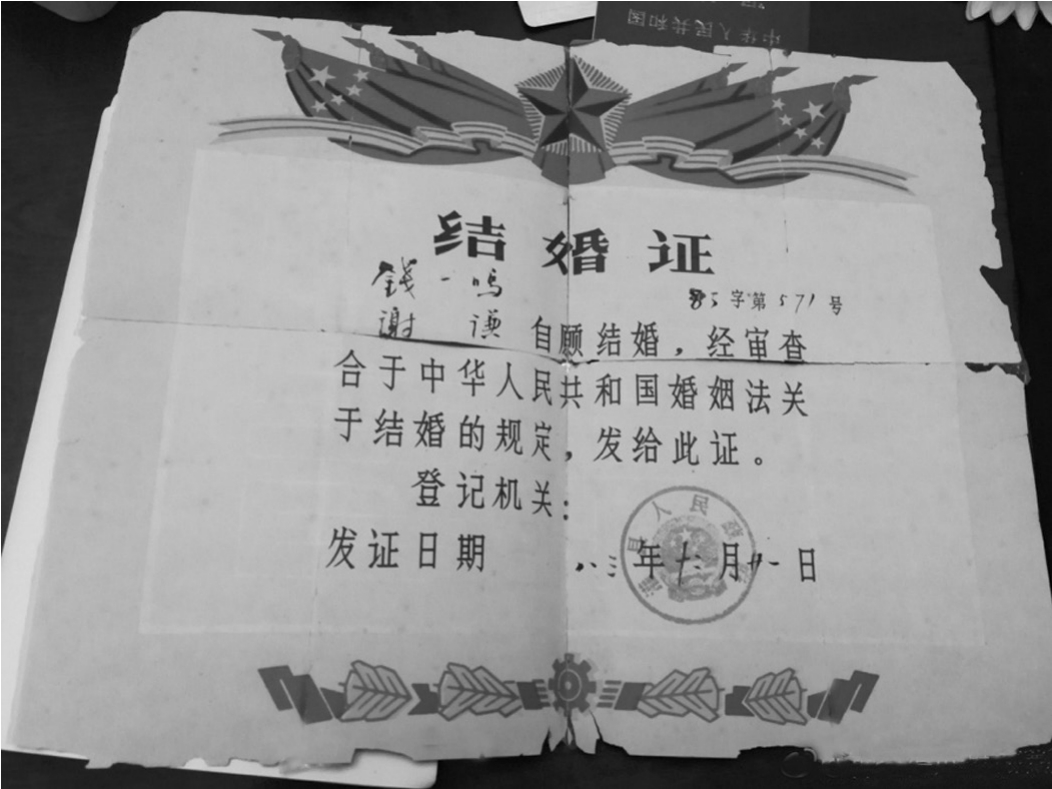 中华人民共和国
结婚证
錢一鳴
83字第571号
謝謙 自愿结婚，经审查
合于中华人民共和国婚姻法关
于结婚的规定，发给此证。
登记机关：
县人民政府
发证日期 八三年十二月廿一日